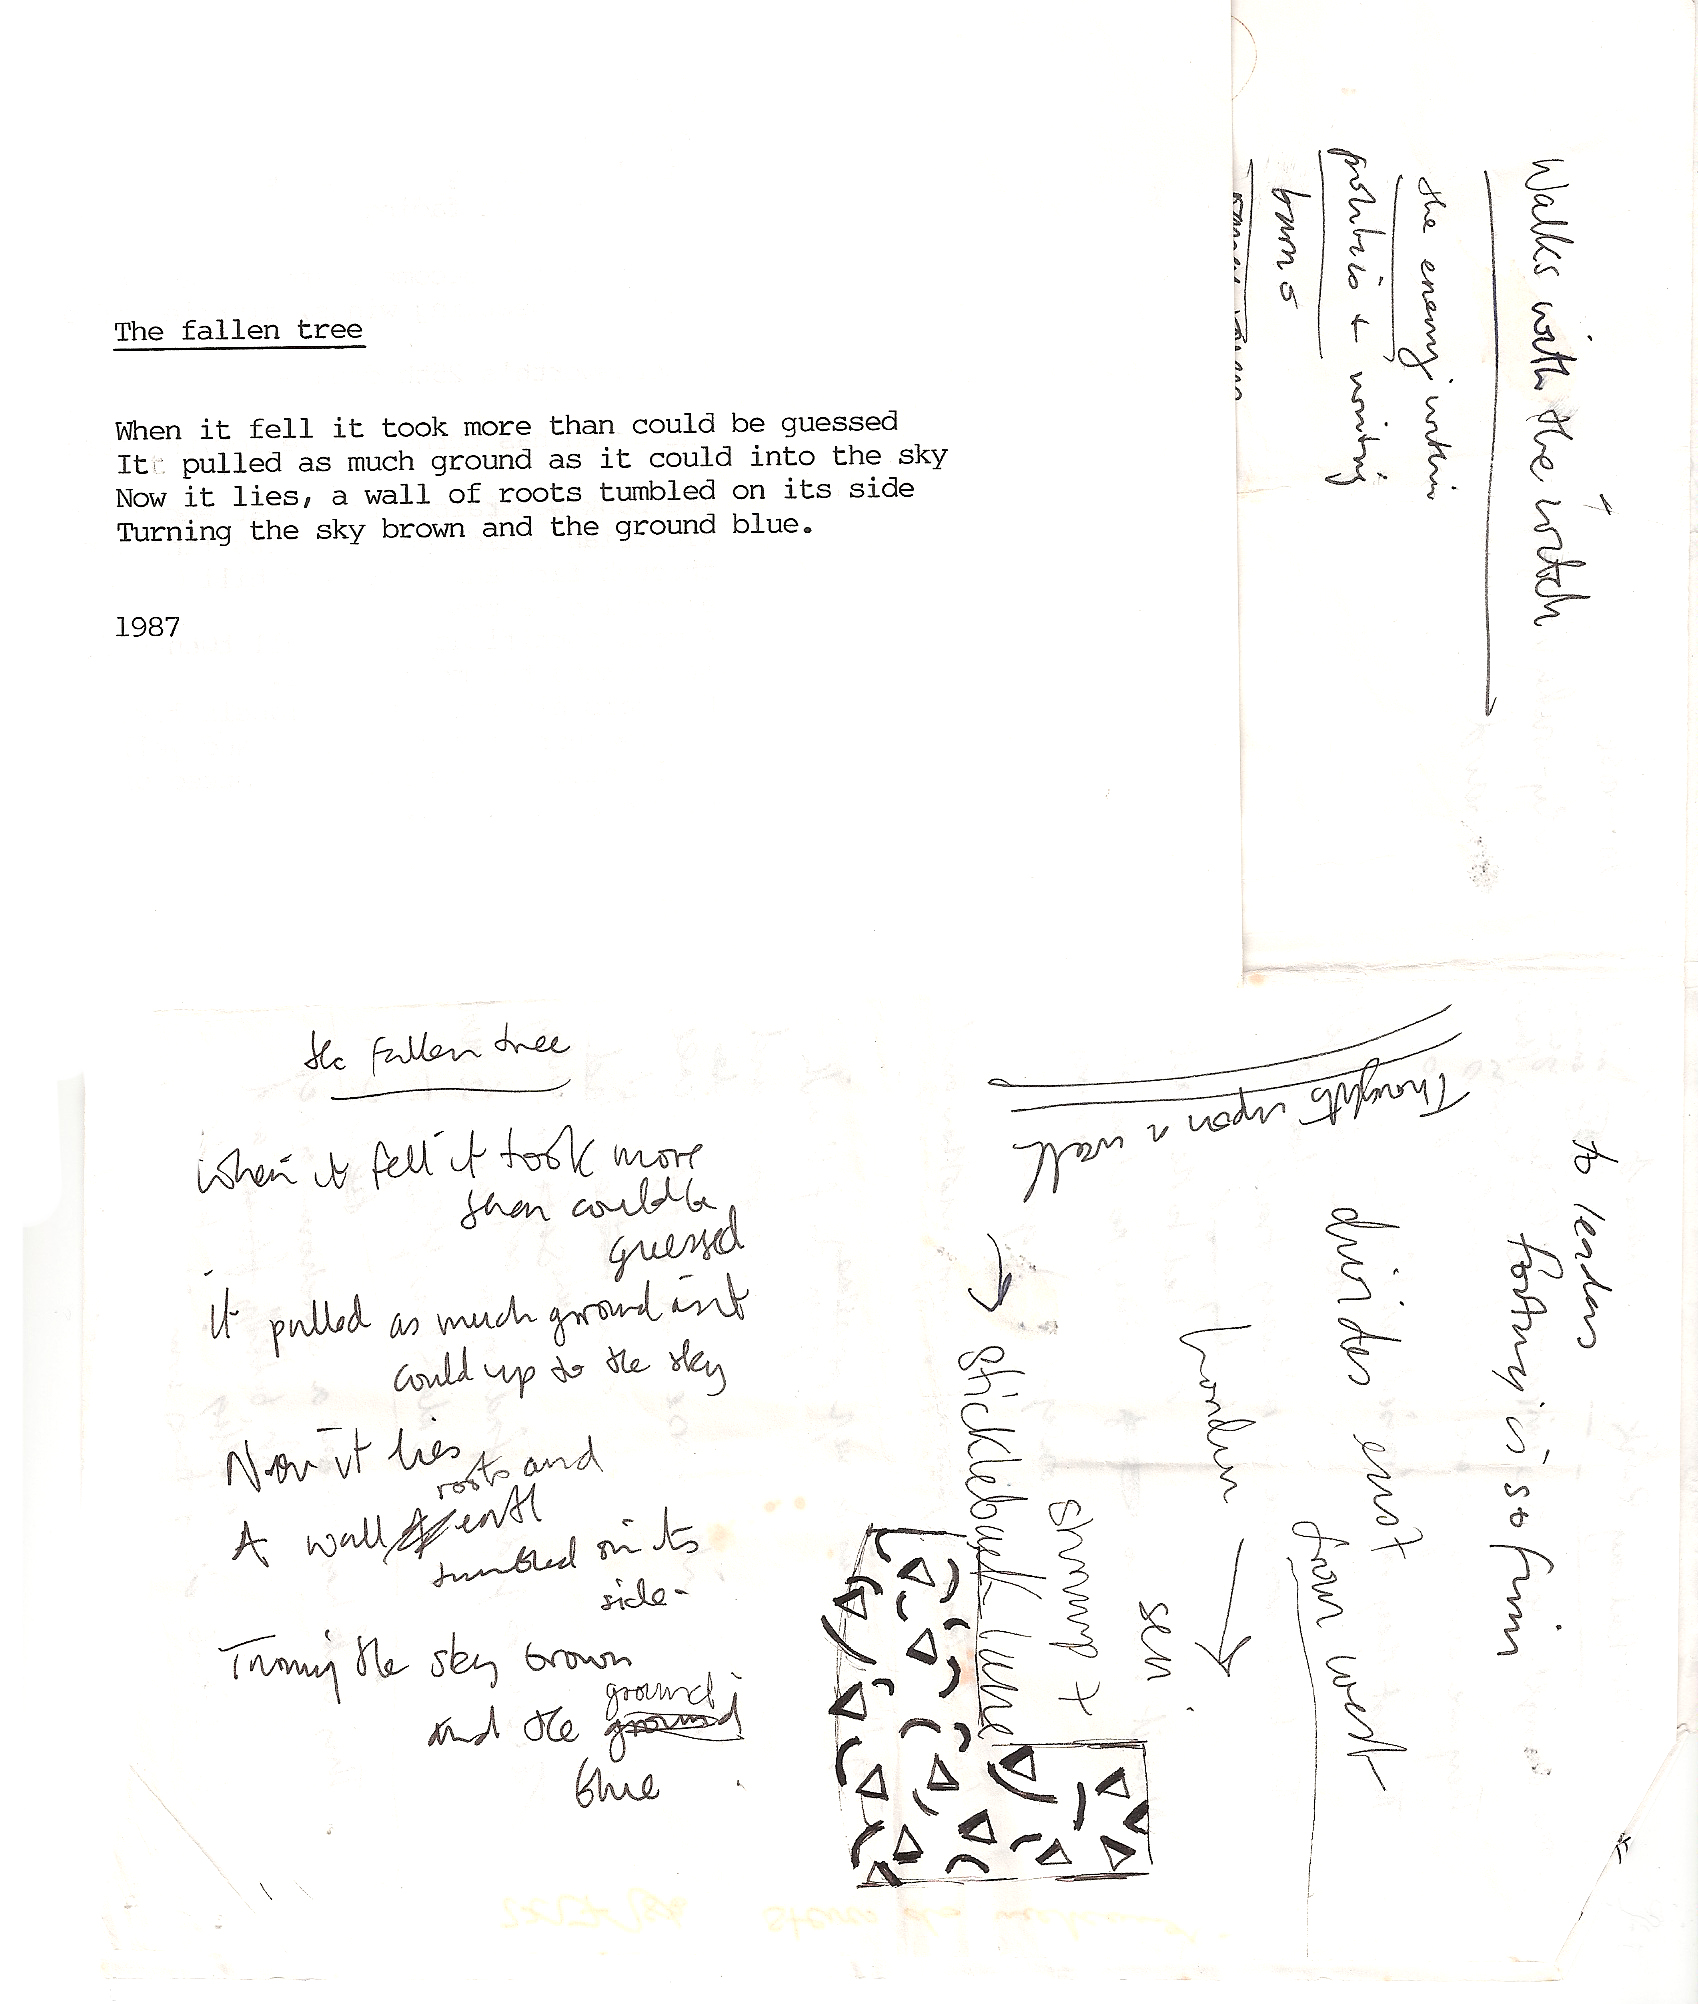 The fallen tree
When it fell it took more than could be guessed
It pulled as much ground as it could into the sky
Now it lies, a wall of roots tumbled on its side
Turning the sky brown and the ground blue.
1987
Walks with the witch
the enemy within
politics + writing
barns
the fallen tree
When it fell it took more
than could be
guessed
it pulled as much ground as it
could up to the sky
Now it lies
roots and
A wall of earth
tumbled on its
side.
Turning the sky brown
ground
and the ground
blue
Thoughts upon a walk
to leaders
footing is so firm
divides east
from west
London
sea.
stump +
stickleback lane